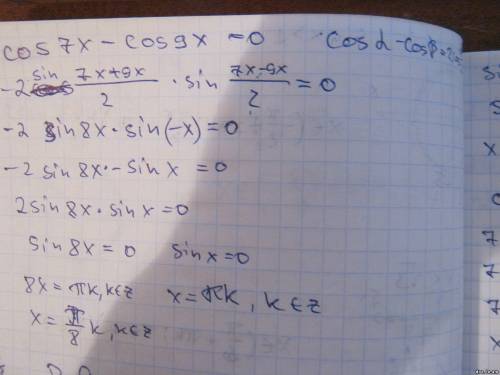 cos 7x - cos 9x = 0 cos α - cos β =
-2 sin (7x+9x)/2 · sin (7x-9x)/2 = 0
-2 sin 8x · sin(-x) = 0
-2 sin 8x · - sin x = 0
2 sin 8x · sin x = 0
sin 8x = 0 sin x = 0
8x = πk, k∈z x = πk, k∈z
x = π/8 k, k∈z